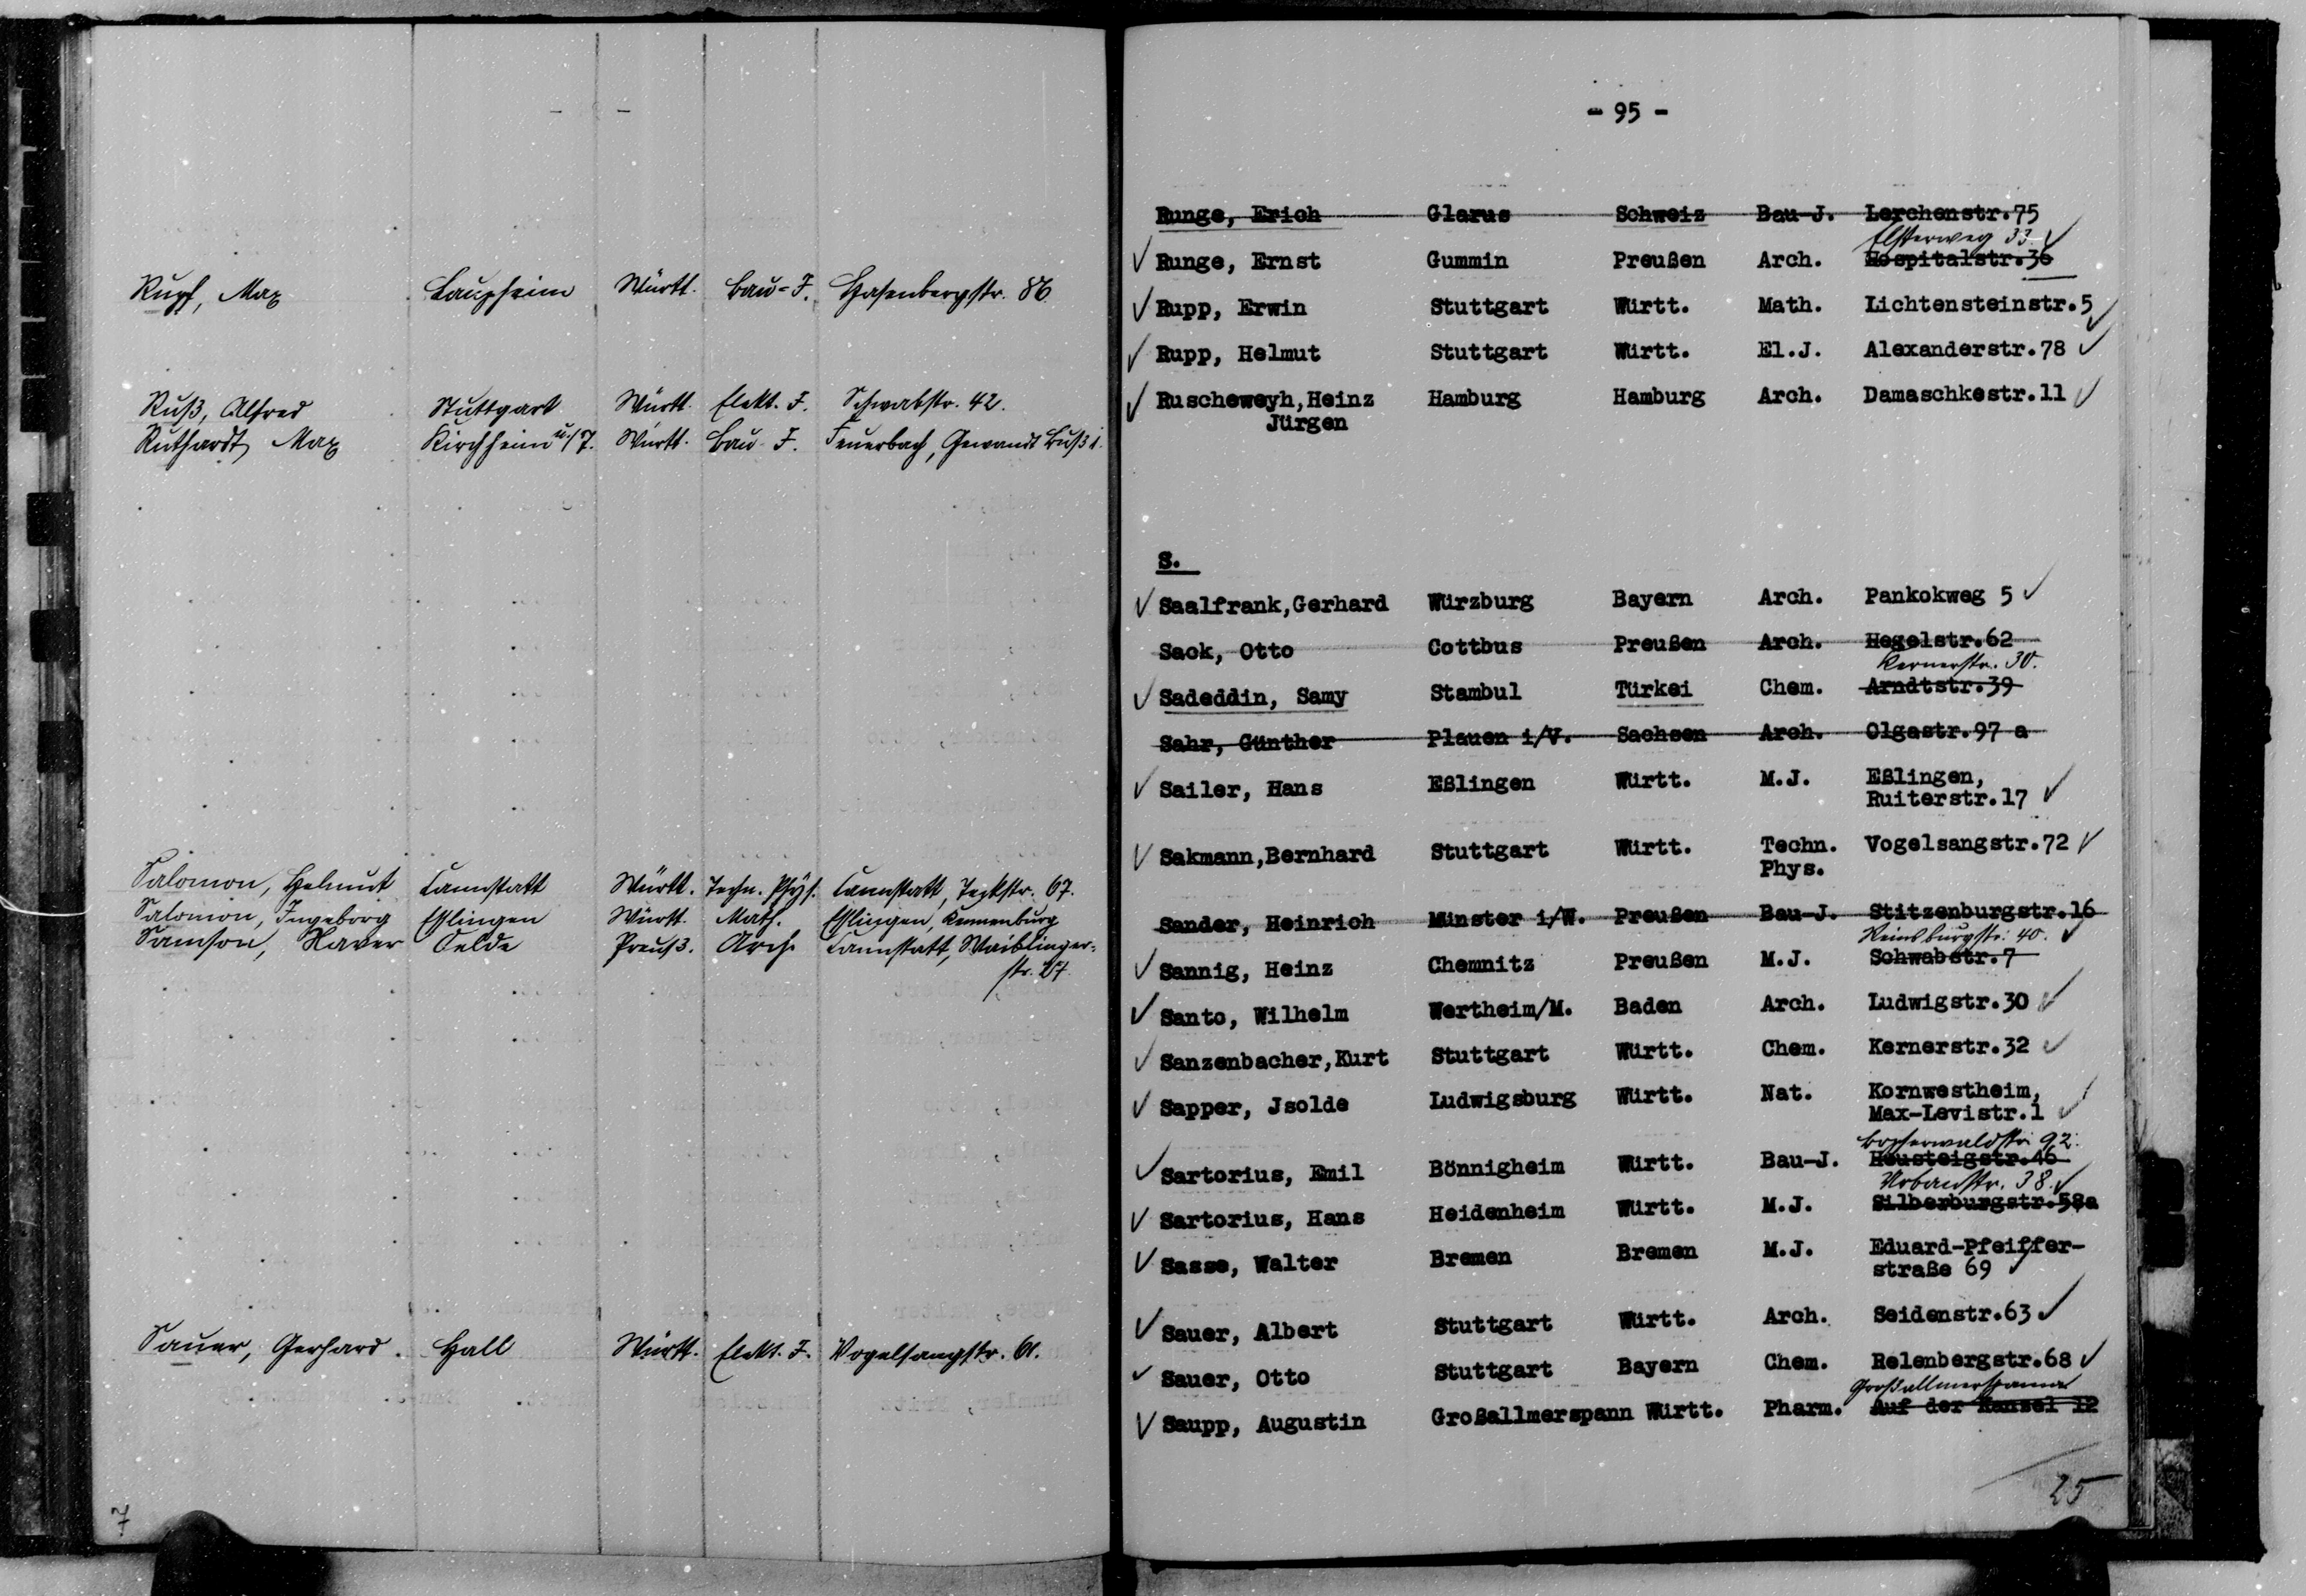 Rupf, Max Laupheim Württ. Bau-J. Hasenbergstr. 86
Ruß, Alfred Stuttgart Württ. Elekt. J. Schwabstr. 42.
Ruthardt Max Kirchheim u/T. Württ. Bau J. Feuerbach, Gewandt
Salomon, Helmut Cannstatt Württ. Techn. Phys. Cannstatt, Teckstr. 67.
Salomon, Ingeborg Eßlingen Württ. Math. Eßlingen, Kennenburg
Samson, Xaver Oelde Preuß. Arch. Cannstatt, Waiblinger-
str. 27.
Sauer, Gerhard. Hall Württ. Elekt. J. Vogelsangstr. 61.
7
- 95 -
Runge, Erich Glarus Schweiz Bau-J. Lerchenstr.75
Elsterweg 33.
Runge, Ernst Gummin Preußen Arch. Hospitalstr.36
Rupp, Erwin Stuttgart Württ. Math. Lichtensteinstr.5
Rupp, Helmut Stuttgart Württ. El.J. Alexanderstr.78
Ruscheweyh,Heinz Hamburg Hamburg Arch. Damaschkestr.11
Jürgen
S.
Saalfrank,Gerhard Würzburg Bayern Arch. Pankokweg 5
Sack, Otto Cottbus Preußen Arch. Hegelstr.62
Kernerstr. 30.
Sadeddin, Samy Stambul Türkei Chem. Arndtstr.39
Sahr, Günther Plauen i/V. Sachsen Arch. Olgastr.97 a
Sailer, Hans Eßlingen Württ. M.J. Eßlingen,
Ruiterstr.17
Sakmann,Bernhard Stuttgart Württ. Techn. Vogelsangstr.72
Phys.
Sander, Heinrich Münster i/W. Preußen Bau-J. Stitzenburgstr.16
Reinsburgstr. 40.
Sannig, Heinz Chemnitz Preußen M.J. Schwabstr.7
Santo, Wilhelm Wertheim/M. Baden Arch. Ludwigstr.30
Sanzenbacher,Kurt Stuttgart Württ. Chem. Kernerstr.32
Sapper, Jsolde Ludwigsburg Württ. Nat. Kornwestheim,
Max-Levistr.1
Bopserwaldstr. 92.
Sartorius, Emil Bönnigheim Württ. Bau-J. Heusteigstr.46
Urbanstr. 38.
Sartorius, Hans Heidenheim Württ. M.J. Silberburgstr.58a
Sasse, Walter Bremen Bremen M.J. Eduard-Pfeiffer-
straße 69
Sauer, Albert Stuttgart Württ. Arch. Seidenstr.63
Sauer, Otto Stuttgart Bayern Chem. Relenbergstr.68
Großallmerspann
Saupp, Augustin Großallmerspann Württ. Pharm. Auf der Kanzel 12
25